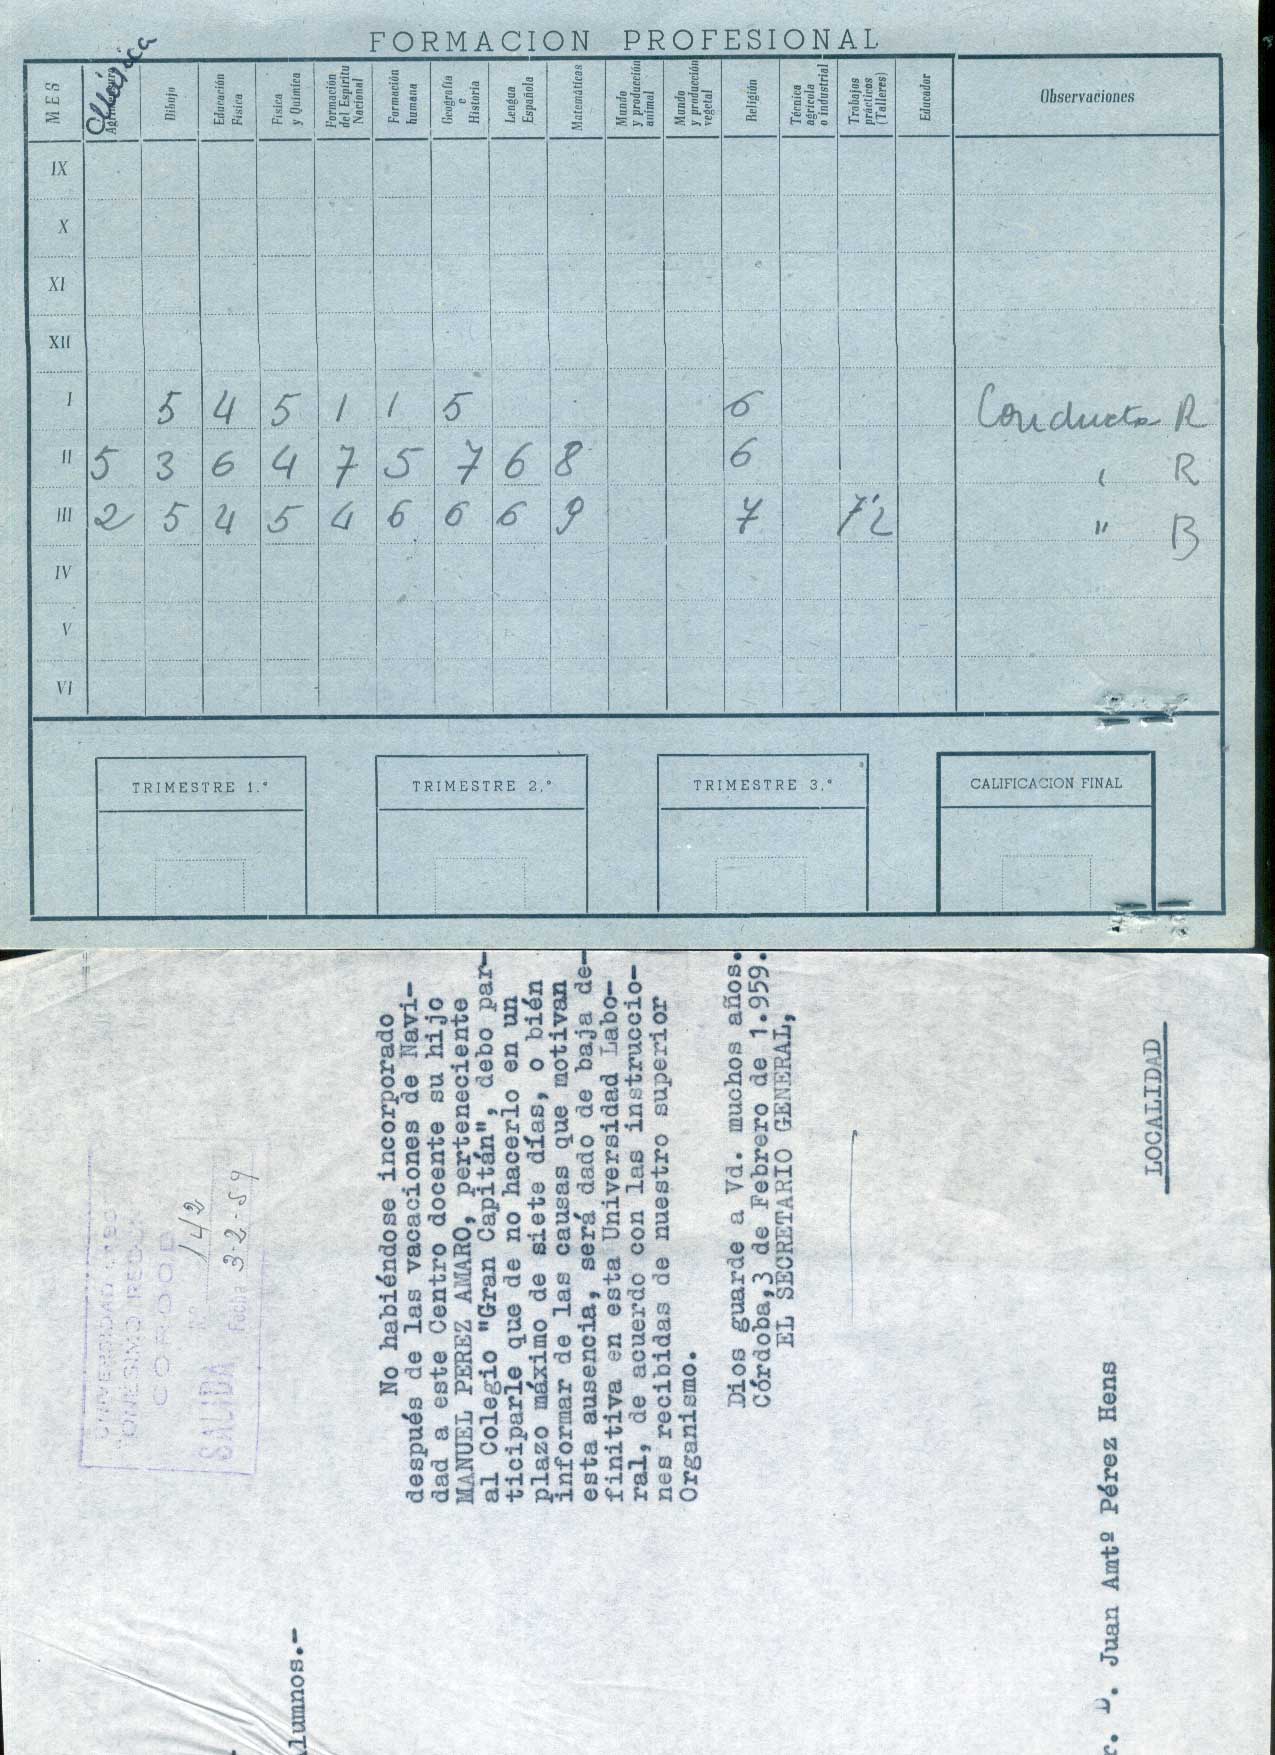 FORMACION PROFESIONAL
MES
Agricultura
Música
Dibujo
Educación Física
Física y Química
Formación del Espíritu Nacional
Formación humana
Geografía e Historia
Lengua Española
Matemáticas
Mundo y producción animal
Mundo y producción vegetal
Religión
Técnica agrícola o industrial
Trabajos prácticos (Talleres)
Educador
Observaciones
IX
X
XI
XII
I 5 4 5 1 1 5 6 Conducta R
II 5 3 6 4 7 5 7 6 8 6 " R
III 2 5 4 5 4 6 6 6 9 7 7'2 " B
IV
V
VI
TRIMESTRE 1.º TRIMESTRE 2.º TRIMESTRE 3.º CALIFICACION FINAL
UNIVERSIDAD
CORDOBA
SALIDA Nº 142
Fecha 3-2-59
Alumnos.-
No habiéndose incorporado
después de las vacaciones de Navi-
dad a este Centro docente su hijo
MANUEL PEREZ AMARO, perteneciente
al Colegio "Gran Capitán", debo par-
ticiparle que de no hacerlo en un
plazo máximo de siete días, o bién
informar de las causas que motivan
esta ausencia, será dado de baja de-
finitiva en esta Universidad Labo-
ral, de acuerdo con las instruccio-
nes recibidas de nuestro superior
Organismo.
Dios guarde a Vd. muchos años.
Córdoba,3 de Febrero de 1.959.
EL SECRETARIO GENERAL,
r. D. Juan Amtº Pérez Hens
LOCALIDAD